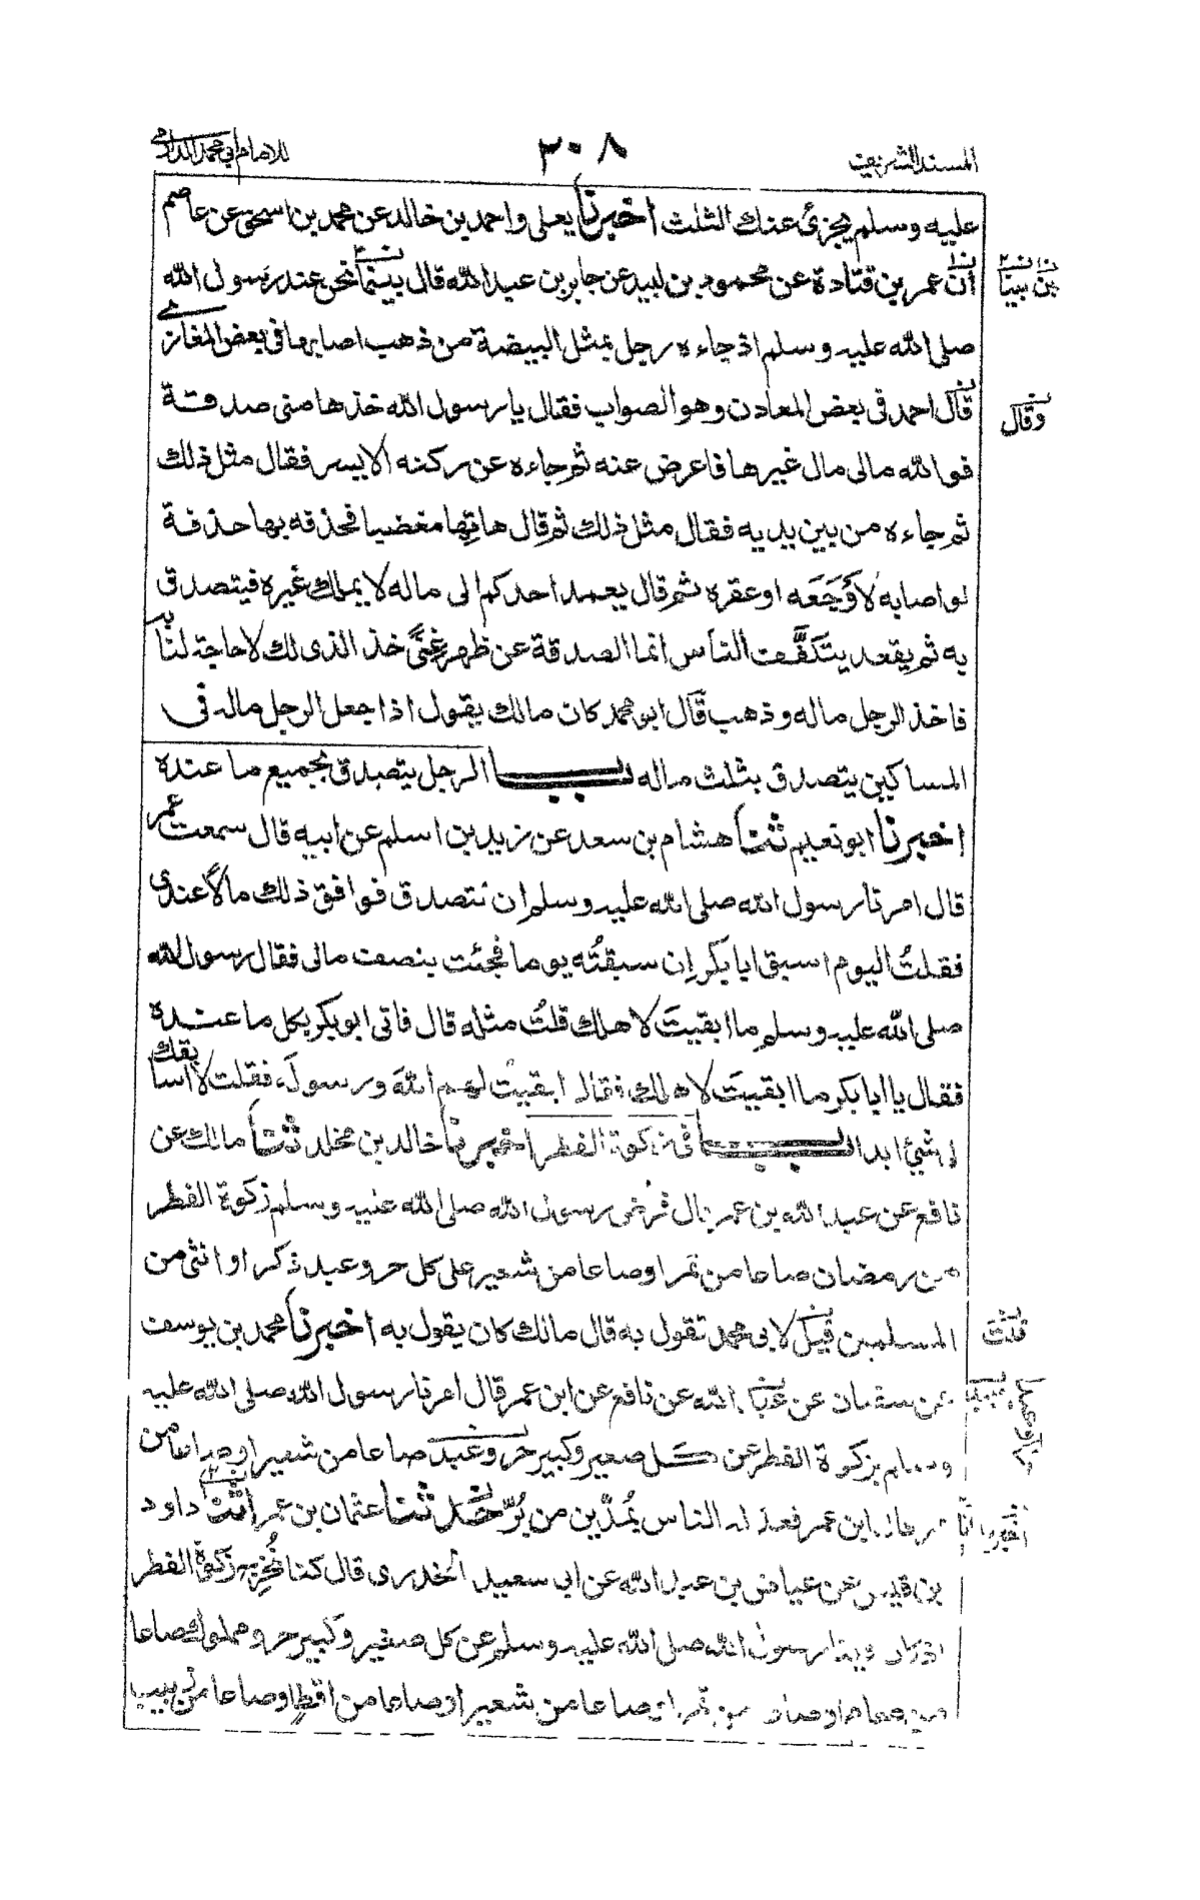 المسند الشريف
٣٠٨
للامام ابى محمد الدارمى
عليه وسلم يجزئ عنك الثلث اخبرنا يعلى واحمد بن خالد عن محمد بن اسحق عن عاصم
ان عمر بن قتادة عن محمود بن لبيد عن جابر بن عبد الله قال بينما نحن عند رسول الله
صلى الله عليه وسلم اذ جاءه رجل بمثل البيضة من ذهب اصابها فى بعض المغازى
قال احمد فى بعض المعادن وهو الصواب فقال يا رسول الله خذها منى صدقة
وقال
فوالله مالى مال غيرها فاعرض عنه ثم جاءه عن ركنه الايسر فقال مثل ذلك
ثم جاءه من بين يديه فقال مثل ذلك ثم قال هاتها مغضبا فحذفه بها حذفة
لو اصابه لاَوجَعَه او عقره ثم قال يعمد احدكم الى ماله لا يملك غيره فيتصدق
به ثم يقعد يتكفّف الناس انما الصدقة عن ظهر غِنًى خذ الذى لك لا حاجة لنا
فاخذ الرجل ماله وذهب قال ابو محمد كان مالك يقول اذا جعل الرجل ماله فى
المساكين يتصدق بثلث ماله باب الرجل يتصدق بجميع ما عنده
اخبرنا ابو نعيم ثنا هشام بن سعد عن زيد بن اسلم عن ابيه قال سمعت عمر
قال امرنا رسول الله صلى الله عليه وسلم ان نتصدق فوافق ذلك مالًا عندى
فقلتُ اليوم اسبق ابا بكر اِن سبقتُه يوما فجئت بنصف مالى فقال رسول الله
صلى الله عليه وسلم ما ابقيتَ لاهلك قلتُ مثله قال فاتى ابو بكر بكل ما عنده
فقال يا ابا بكر ما ابقيتَ لاهلك فقال ابقيت لهم اللهَ ورسولَه فقلت لا اسابقك
الى شئ ابدا باب فى زكوة الفطر اخبرنا خالد بن مخلد ثنا مالك عن
نافع عن عبد الله بن عمر قال فرض رسول الله صلى الله عليه وسلم زكوة الفطر
من رمضان صاعا من تمر او صاعا من شعير على كل حر وعبد ذكر او انثى من
المسلمين قيل لابى محمد تقول به قال مالك كان يقول به اخبرنا محمد بن يوسف
عن سفيان عن عبيد الله عن نافع عن ابن عمر قال امرنا رسول الله صلى الله عليه
وسلم بزكوة الفطر عن كل صغير وكبير حر وعبد صاعا من شعير او صاعا من
تمر قال ابن عمر فعدله الناس بمُدَّين من بُرّ حدثنا عثمان بن عمر انا داود
اخبرنا
بن قيس عن عياض بن عبد الله عن ابى سعيد الخدرى قال كنا نُخرِج زكوة الفطر
اذ كان فينا رسول الله صلى الله عليه وسلم عن كل صغير وكبير حر ومملوك صاعا
من طعام او صاعا من تمر او صاعا من شعير او صاعا من اقط او صاعا من زبيب